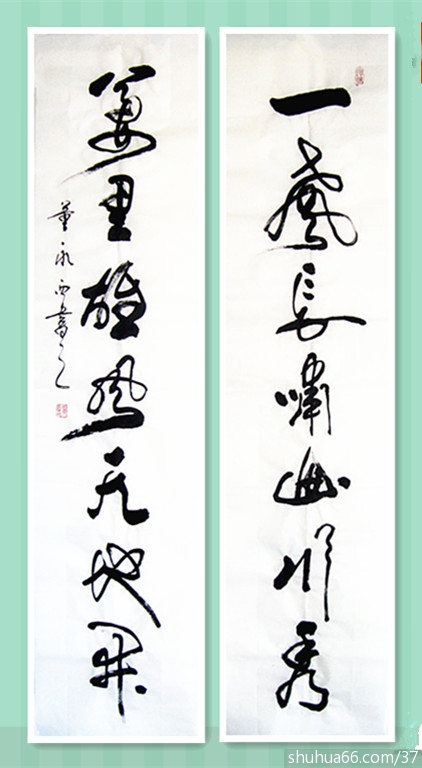 一鳳長嘯幽州秀
萬里雄風天地開
董永西書之
shuhua66.com/37